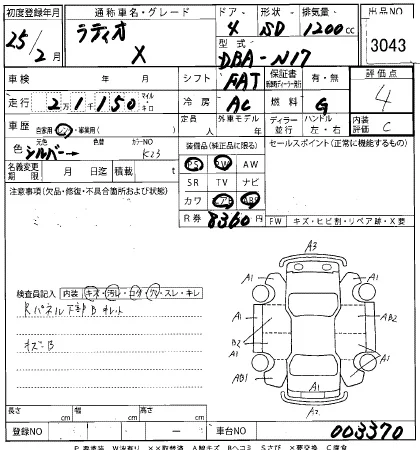 初度登録年月 通称車名・グレード ドア 形状 排気量 出品NO
25/2月 ラティオ X 4 SD 1200cc 3043
型式 DBA-N17
車検 年 月 シフト FAT 保証書 有・無 評価点 4
走行 2万1千150 マイル・キロ 冷房 AC 燃料 G 内装評価 C
車歴 自家用・レンタ・事業用( ) 定員 人 外車モデル 年 ディーラー・並行 ハンドル 左・右
色 元色 シルバー 色替 カラーNO K23 装備品(純正品に限る) セールスポイント(正常に機能するもの)
PS PW AW
名義変更期限 月 日迄 積載 t SR TV ナビ
注意事項(欠品・修復・不具合箇所および状態) カワ エアB ABS
R券 8360円 FW キズ・ヒビ割・リペア跡・X要
検査員記入 内装 キズ・汚れ・コゲ・穴・スレ・キレ
Rパネル下部Bオレット
オズーB
A3
A1 A1
A1 B2 AB2
B2 A1 A1
AB1 A1 A1
A2
長さ cm 幅 cm 高さ cm
登録NO 車台NO 003370